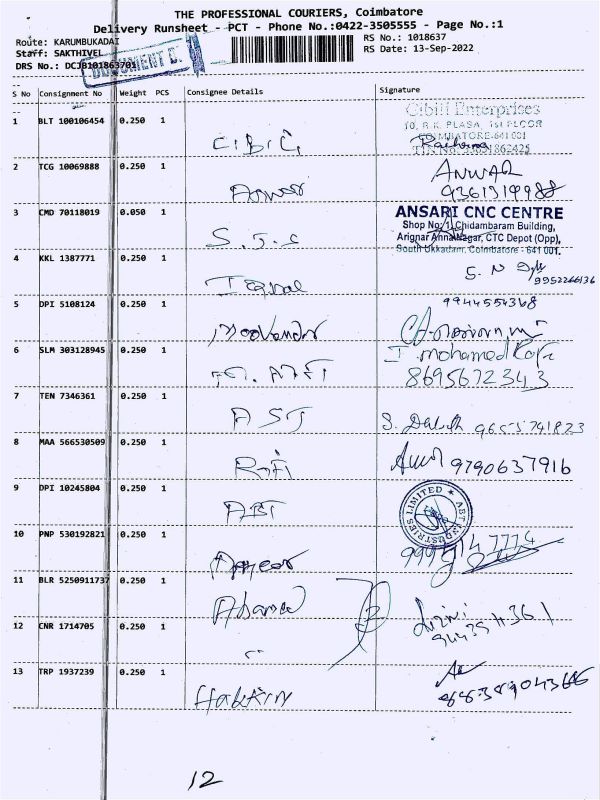 THE PROFESSIONAL COURIERS, Coimbatore
Delivery Runsheet - PCT - Phone No.:0422-3505555 - Page No.:1
Route: KARUMBUKADAI
RS No.: 1018637
Staff: SAKTHIVEL
RS Date: 13-Sep-2022
DRS No.: DCJB101863701
S No Consignment No Weight PCS Consignee Details Signature
1 BLT 100106454 0.250 1 C.B.C.
Cibill Enterprises
2 TCG 10069888 0.250 1 Anwar ANWAR
9361319988
3 CMD 70118019 0.050 1 S.J.S
ANSARI CNC CENTRE
Shop No:1, Chidambaram Building,
Arignar Anna Nagar, CTC Depot (Opp),
South Ukkadam, Coimbatore - 641 001.
4 KKL 1387771 0.250 1 Iqbal S. N
9952266136
5 DPI 5108124 0.250 1 Moovendr
9944554368
6 SLM 303128945 0.250 1 I. mohamed Rafi
8695672343
7 TEN 7346361 0.250 1 A S J S. 9655741823
8 MAA 566530509 0.250 1 Rafi 9790637916
9 DPI 10245804 0.250 1 ABT
ABT INDUSTRIES LIMITED
10 PNP 530192821 0.250 1 Ameer
11 BLR 5250911737 0.250 1 Ahamed
12 CNR 1714705 0.250 1 "
13 TRP 1937239 0.250 1 Hakkim
12